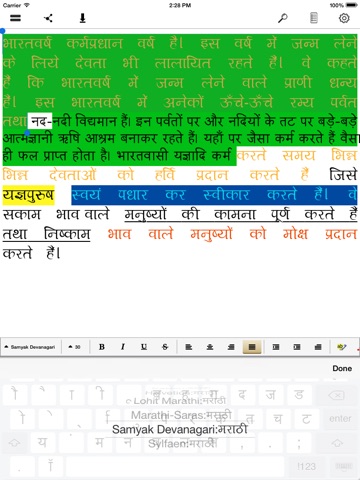 Carrier 2:28 PM 100%
भारतवर्ष कर्मप्रधान वर्ष है। इस वर्ष में जन्म लेने
के लिये देवता भी लालायित रहते हैं। वे कहते
हैं कि भारतवर्ष में जन्म लेने वाले प्राणी धन्य
हैं। इस भारतवर्ष में अनेकों ऊँचे-ऊँचे रम्य पर्वत
तथा नद-नदी विद्यमान हैं। इन पर्वतों पर और नदियों के तट पर बड़े-बड़े
आत्मज्ञानी ऋषि आश्रम बनाकर रहते हैं। यहाँ पर जैसा कर्म करते हैं वैसा
ही फल प्राप्त होता है। भारतवासी यज्ञादि कर्म करते समय भिन्न
भिन्न देवताओं को हवि प्रदान करते हैं जिसे
यज्ञपुरुष स्वयं पधार कर स्वीकार करते हैं। वे
सकाम भाव वाले मनुष्यों की कामना पूर्ण करते हैं
तथा निष्काम भाव वाले मनुष्यों को मोक्ष प्रदान
करते हैं।
Samyak Devanagari 30 B I U S
Done
Lohit Marathi:मराठी
Marathi-Saras:मराठी
Samyak Devanagari:मराठी
Sylfaen:मराठी
.?123